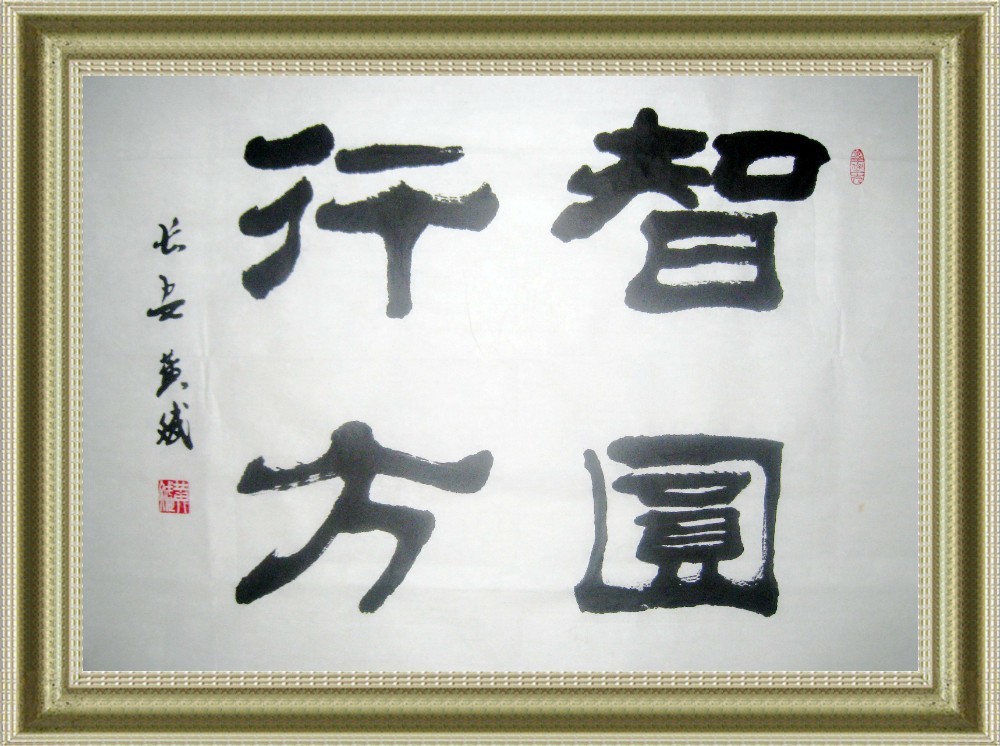 智圓
行方
长安黄斌